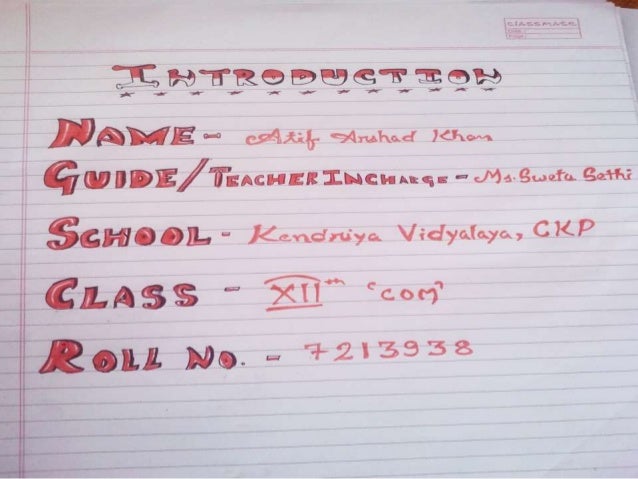 classmate
Date
Page
INTRODUCTION
NAME - Atif Arshad Khan
GUIDE/TEACHER INCHARGE - Ms. Sweta Sethi
SCHOOL - Kendriya Vidyalaya, CKP
CLASS - XIIth 'COM'
ROLL NO. - 7213938